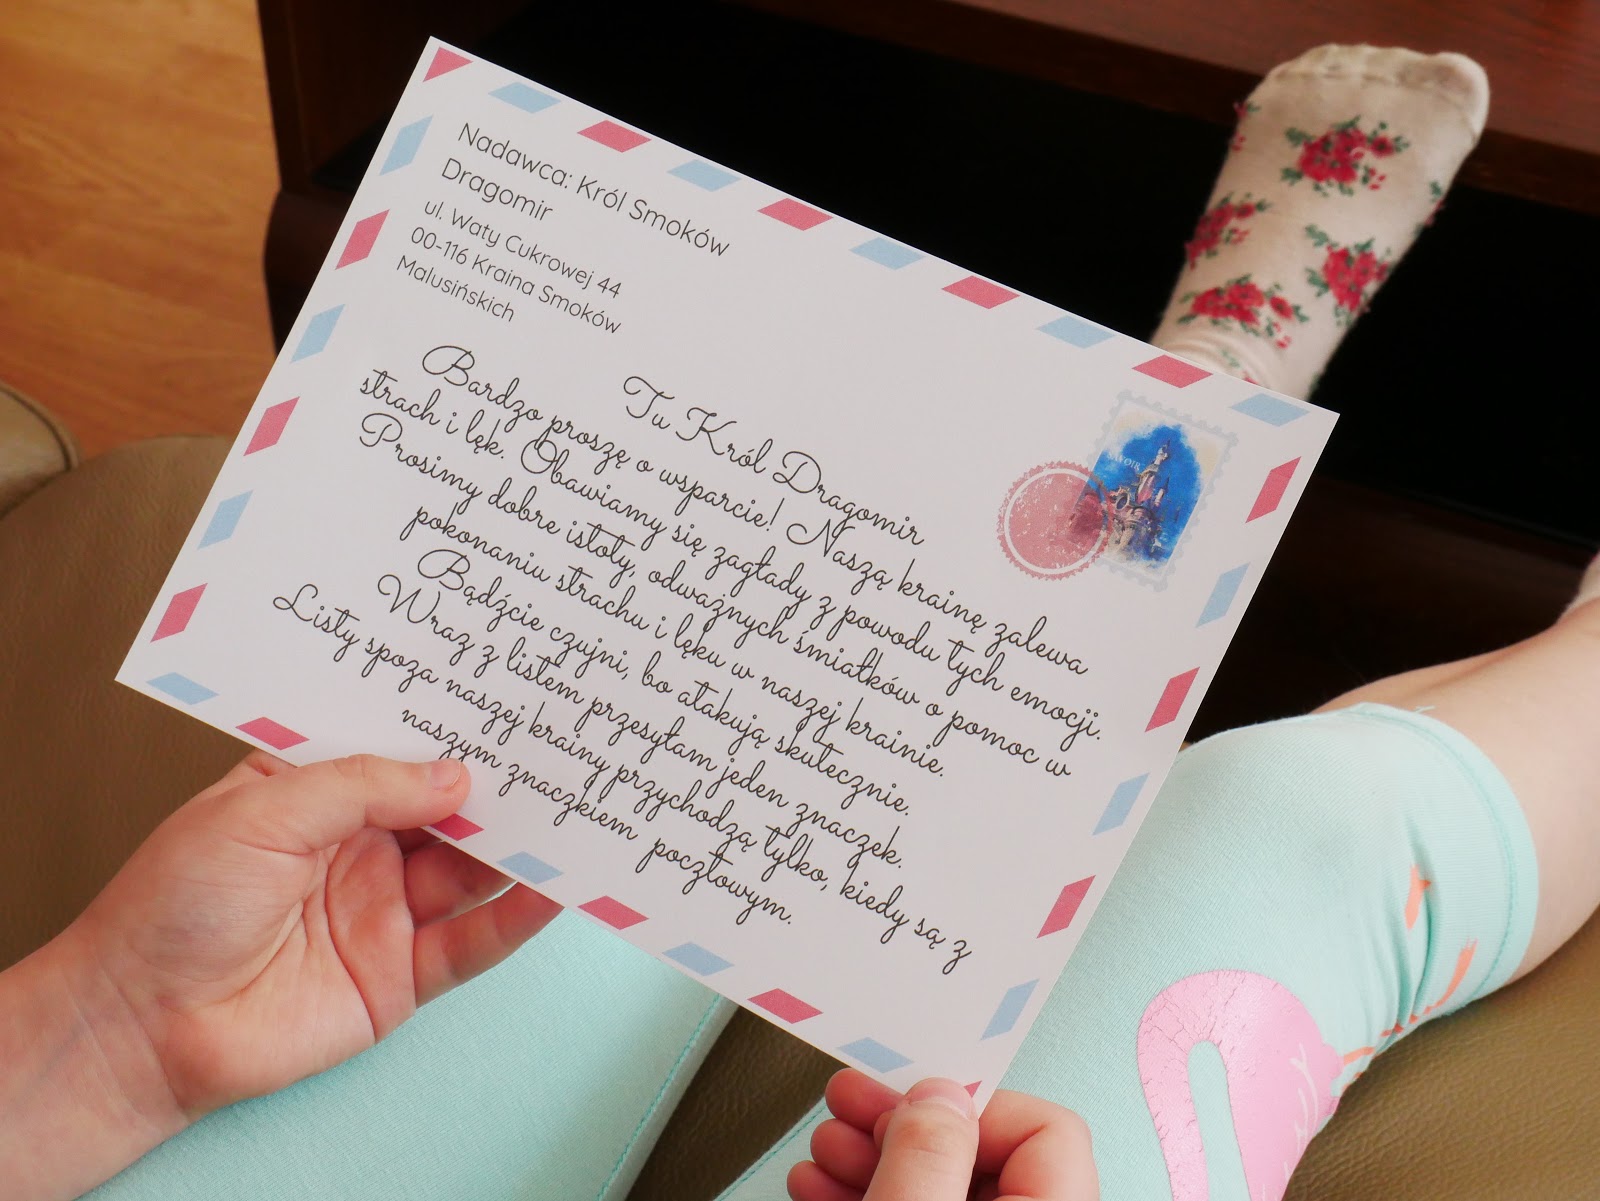 Nadawca: Król Smoków
Dragomir
ul. Waty Cukrowej 44
00-116 Kraina Smoków
Malusińskich
Tu Król Dragomir
Bardzo proszę o wsparcie! Naszą krainę zalewa
strach i lęk. Obawiamy się zagłady z powodu tych emocji.
Prosimy dobre istoty, odważnych śmiałków o pomoc w
pokonaniu strachu i lęku w naszej krainie.
Bądźcie czujni, bo atakują skutecznie.
Wraz z listem przesyłam jeden znaczek.
Listy spoza naszej krainy przychodzą tylko, kiedy są z
naszym znaczkiem pocztowym.